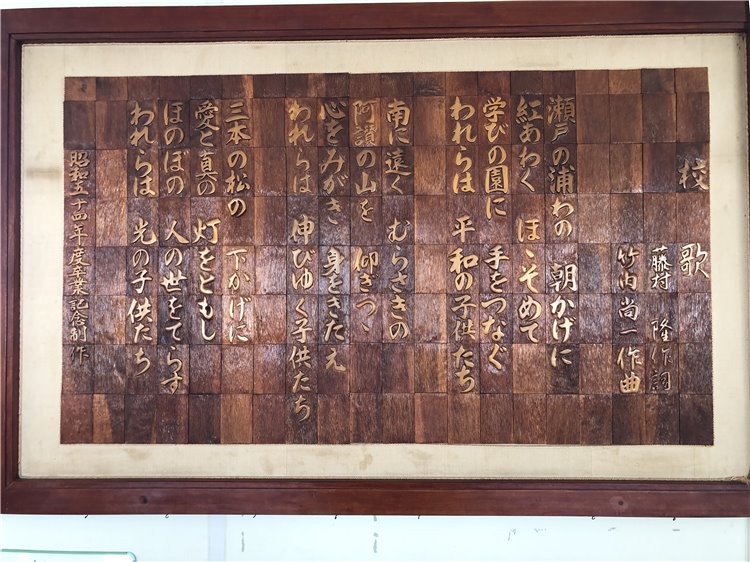 校歌
藤村 隆作詞
竹内尚一作曲
瀬戸の浦わの 朝かげに
紅あわく ほゝそめて
学びの園に 手をつなぐ
われらは 平和の子供たち
南に遠く むらさきの
阿讃の山を 仰ぎつゝ
心をみがき 身をきたえ
われらは 伸びゆく子供たち
三本の松の 下かげに
愛と真の 灯をともし
ほのぼの 人の世をてらす
われらは 光の子供たち
昭和五十四年度卒業記念制作